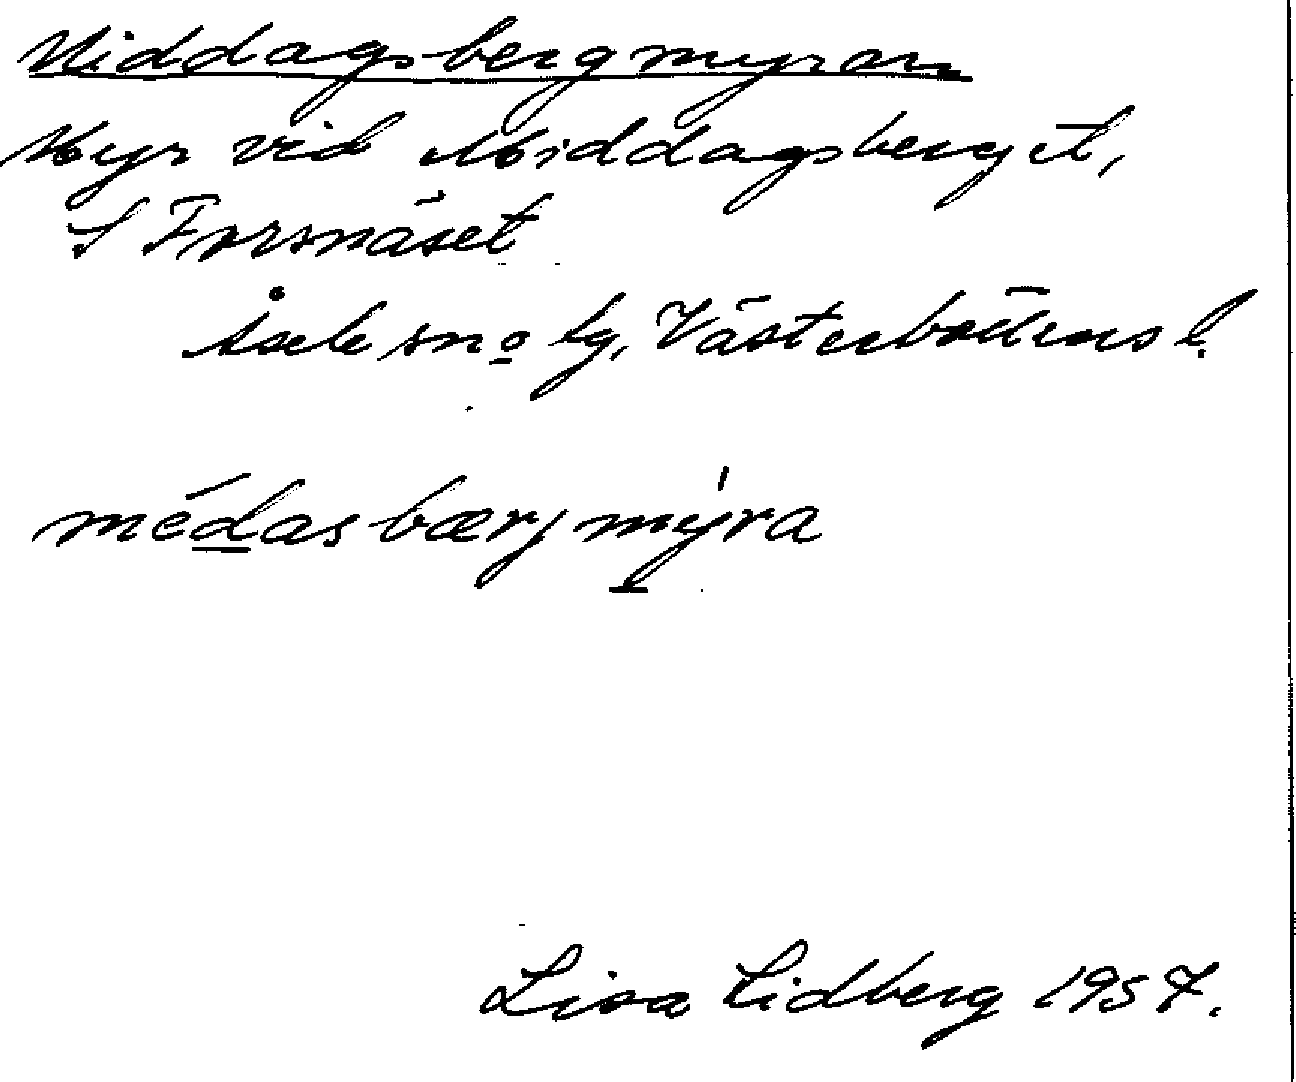 Middagsbergmyran
Myr vid Middagsberget,
S Forsnäset
Åsele sn o lg, Västerbottens l.
médasbærjmýra
Lisa Lidberg 1957.